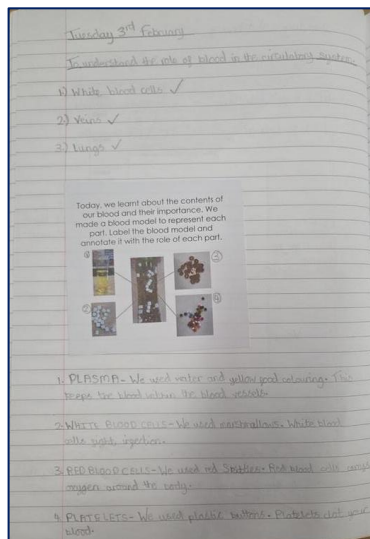 Tuesday 3rd February
To understand the role of blood in the circulatory system.
1) White blood cells ✓
2) Veins ✓
3) Lungs ✓
Today, we learnt about the contents of
our blood and their importance. We
made a blood model to represent each
part. Label the blood model and
annotate it with the role of each part.
1. PLASMA- We used water and yellow food colouring. This
keeps the blood within the blood vessels.
2. WHITE BLOOD CELLS- We used marshmallows. White blood
cells fight, infection.
3. RED BLOOD CELLS- We used red Skittles. Red blood cells
oxygen around the body.
4. PLATELETS- We used plastic buttons. Platelets clot your
blood.